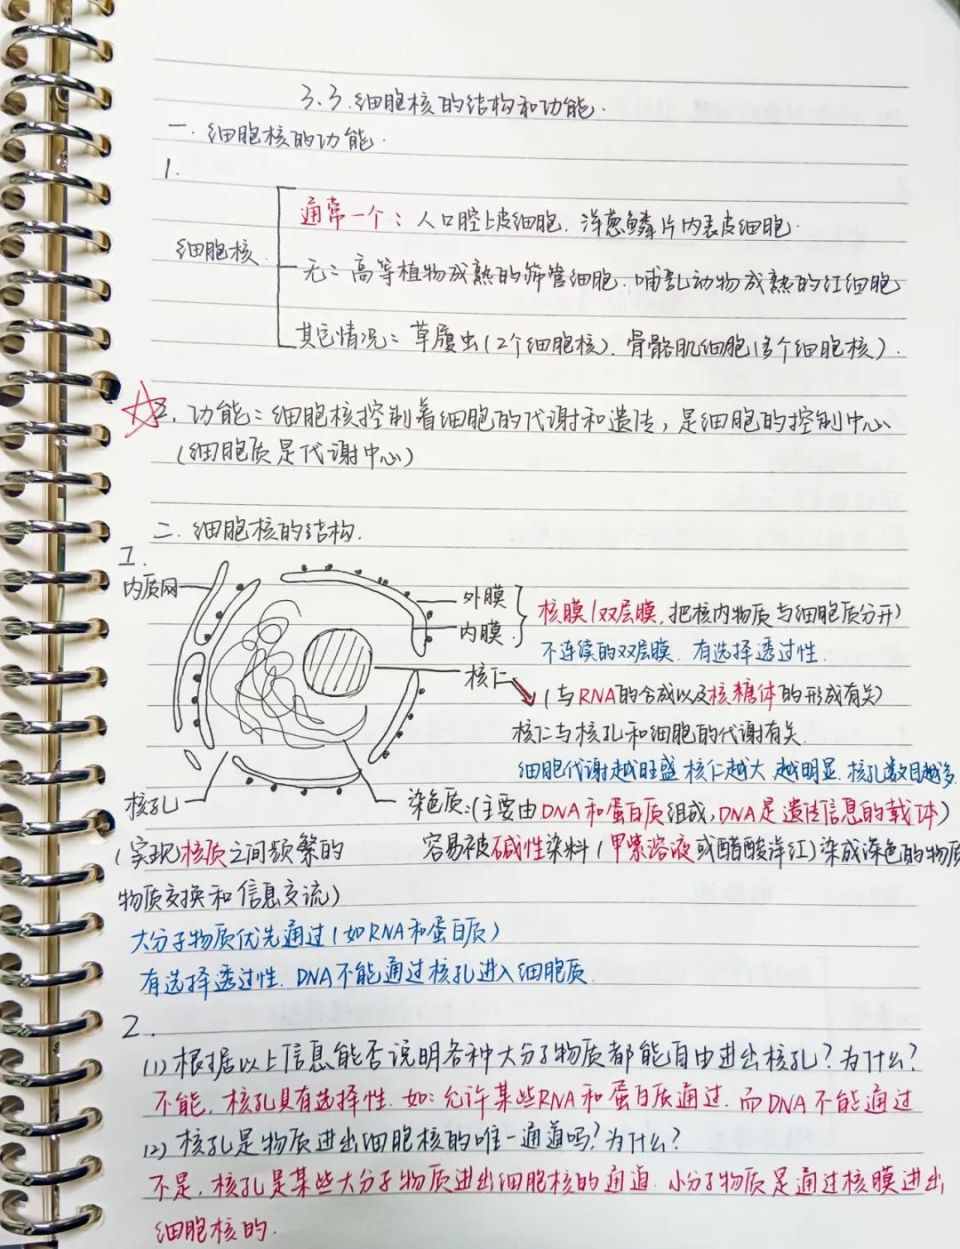 3.3.细胞核的结构和功能.
一.细胞核的功能.
1.
通常一个：人口腔上皮细胞.洋葱鳞片内表皮细胞.
细胞核
无：高等植物成熟的筛管细胞.哺乳动物成熟的红细胞
其它情况：草履虫(2个细胞核).骨骼肌细胞(多个细胞核).
☆2.功能：细胞核控制着细胞的代谢和遗传，是细胞的控制中心
(细胞质是代谢中心)
二.细胞核的结构.
1.
内质网
外膜
内膜
核膜(双层膜,把核内物质与细胞质分开)
不连续的双层膜.有选择透过性.
核仁
(与RNA的合成以及核糖体的形成有关)
核仁与核孔和细胞的代谢有关.
细胞代谢越旺盛.核仁越大.越明显.核孔数目越多.
核孔
染色质:(主要由DNA和蛋白质组成,DNA是遗传信息的载体)
(实现核质之间频繁的
容易被碱性染料(甲紫溶液或醋酸洋红)染成深色的物质
物质交换和信息交流)
大分子物质优先通过(如RNA和蛋白质)
有选择透过性.DNA不能通过核孔进入细胞质.
2.
(1)根据以上信息,能否说明各种大分子物质都能自由进出核孔?为什么?
不能,核孔具有选择性.如:允许某些RNA和蛋白质通过.而DNA不能通过
(2)核孔是物质进出细胞核的唯一通道吗?为什么?
不是,核孔是某些大分子物质进出细胞核的通道.小分子物质是通过核膜进出
细胞核的.